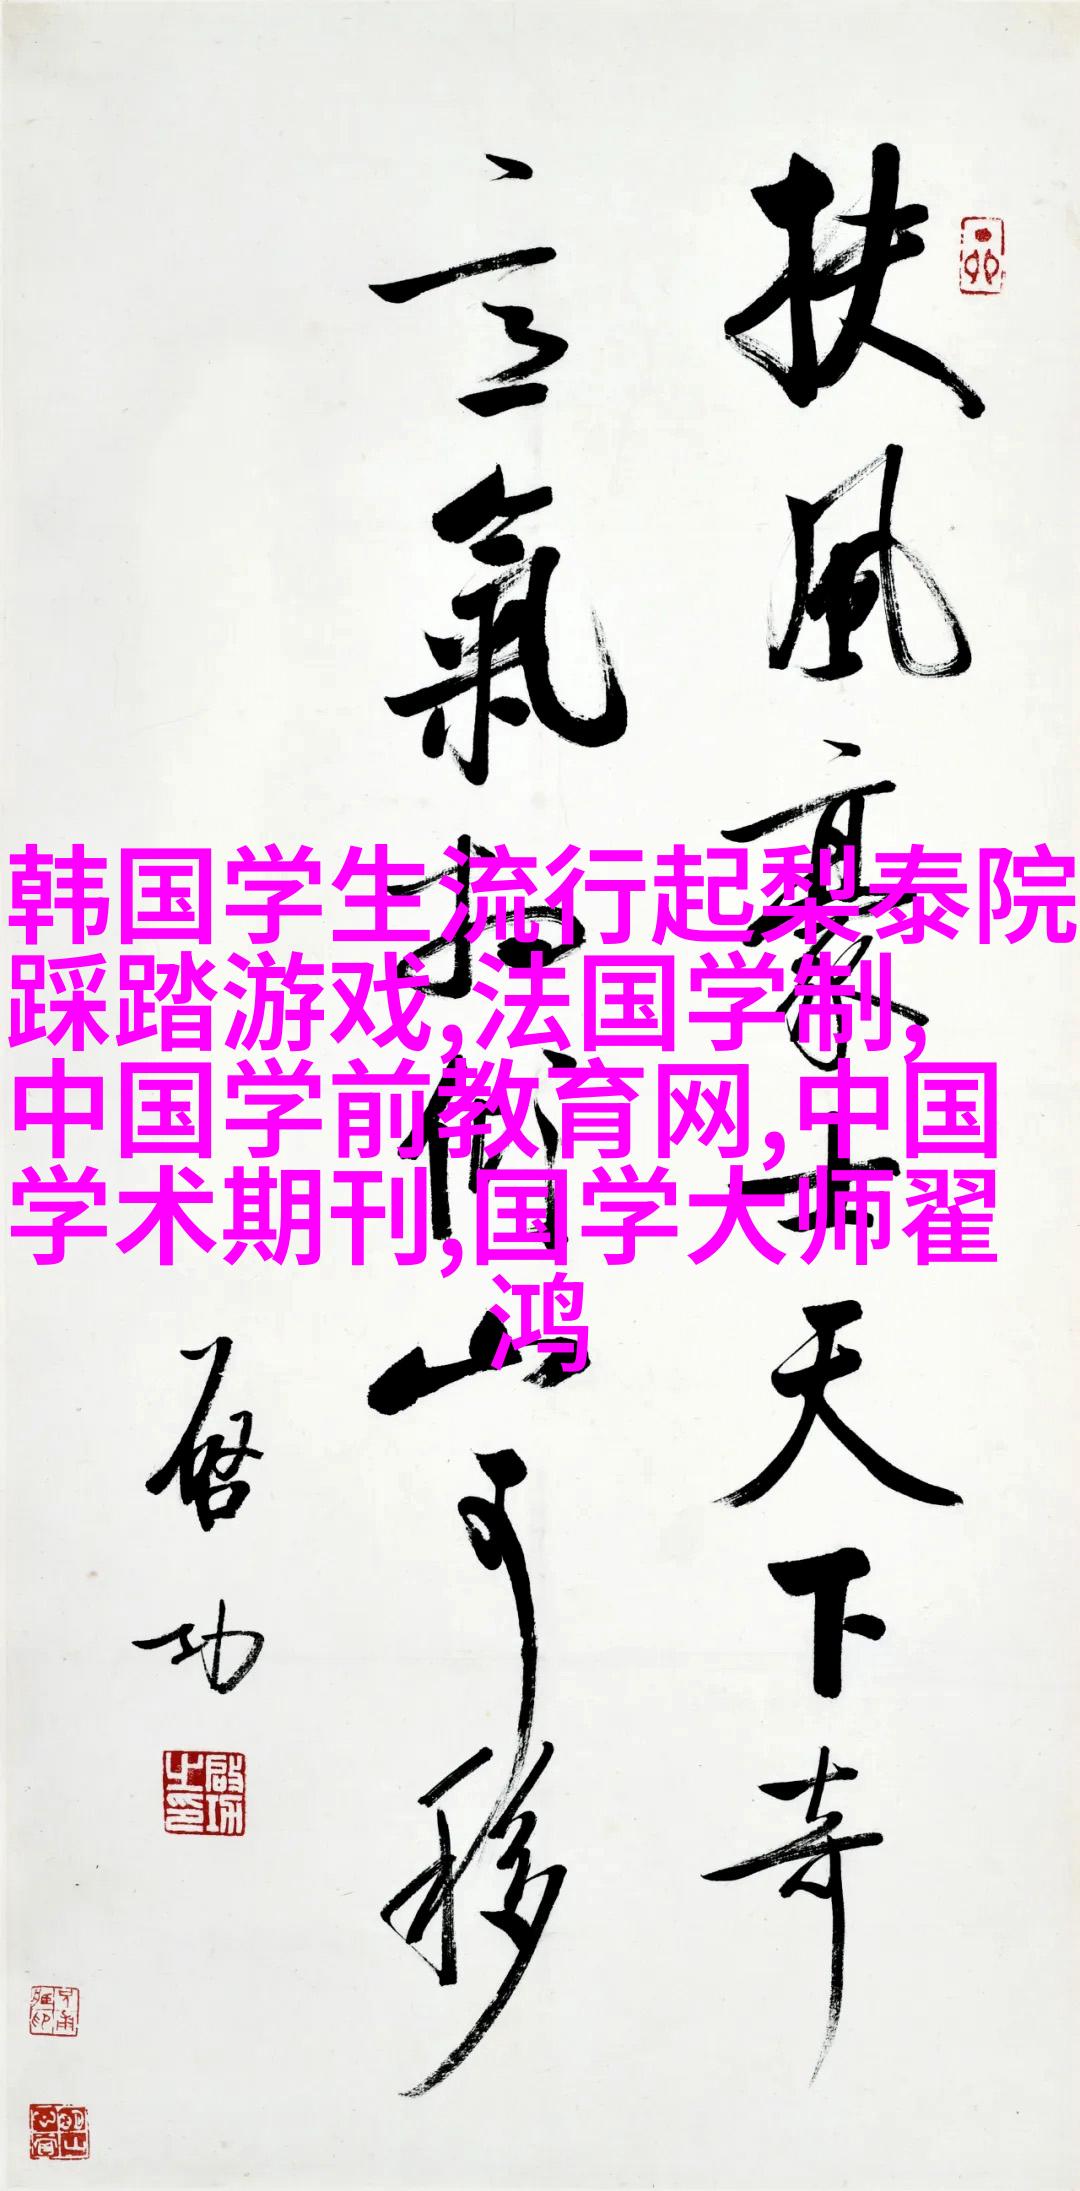 扶風豪士天下奇
意氣相傾山可移
啓功
啟功之印
韩国学生流行起梨泰院
踩踏游戏,法国学制,
中国学前教育网,中国
学术期刊,国学大师翟
鸿